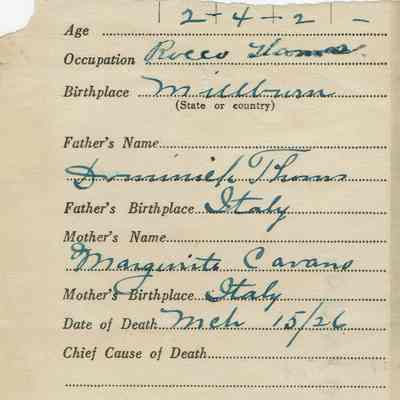 Age 2 - 4 - 2 -
Occupation Rocco Thoms
Birthplace Millburn
(State or country)
Father's Name
Dominick Thoms
Father's Birthplace Italy
Mother's Name
Margurite Cavano
Mother's Birthplace Italy
Date of Death Mch 15/26
Chief Cause of Death